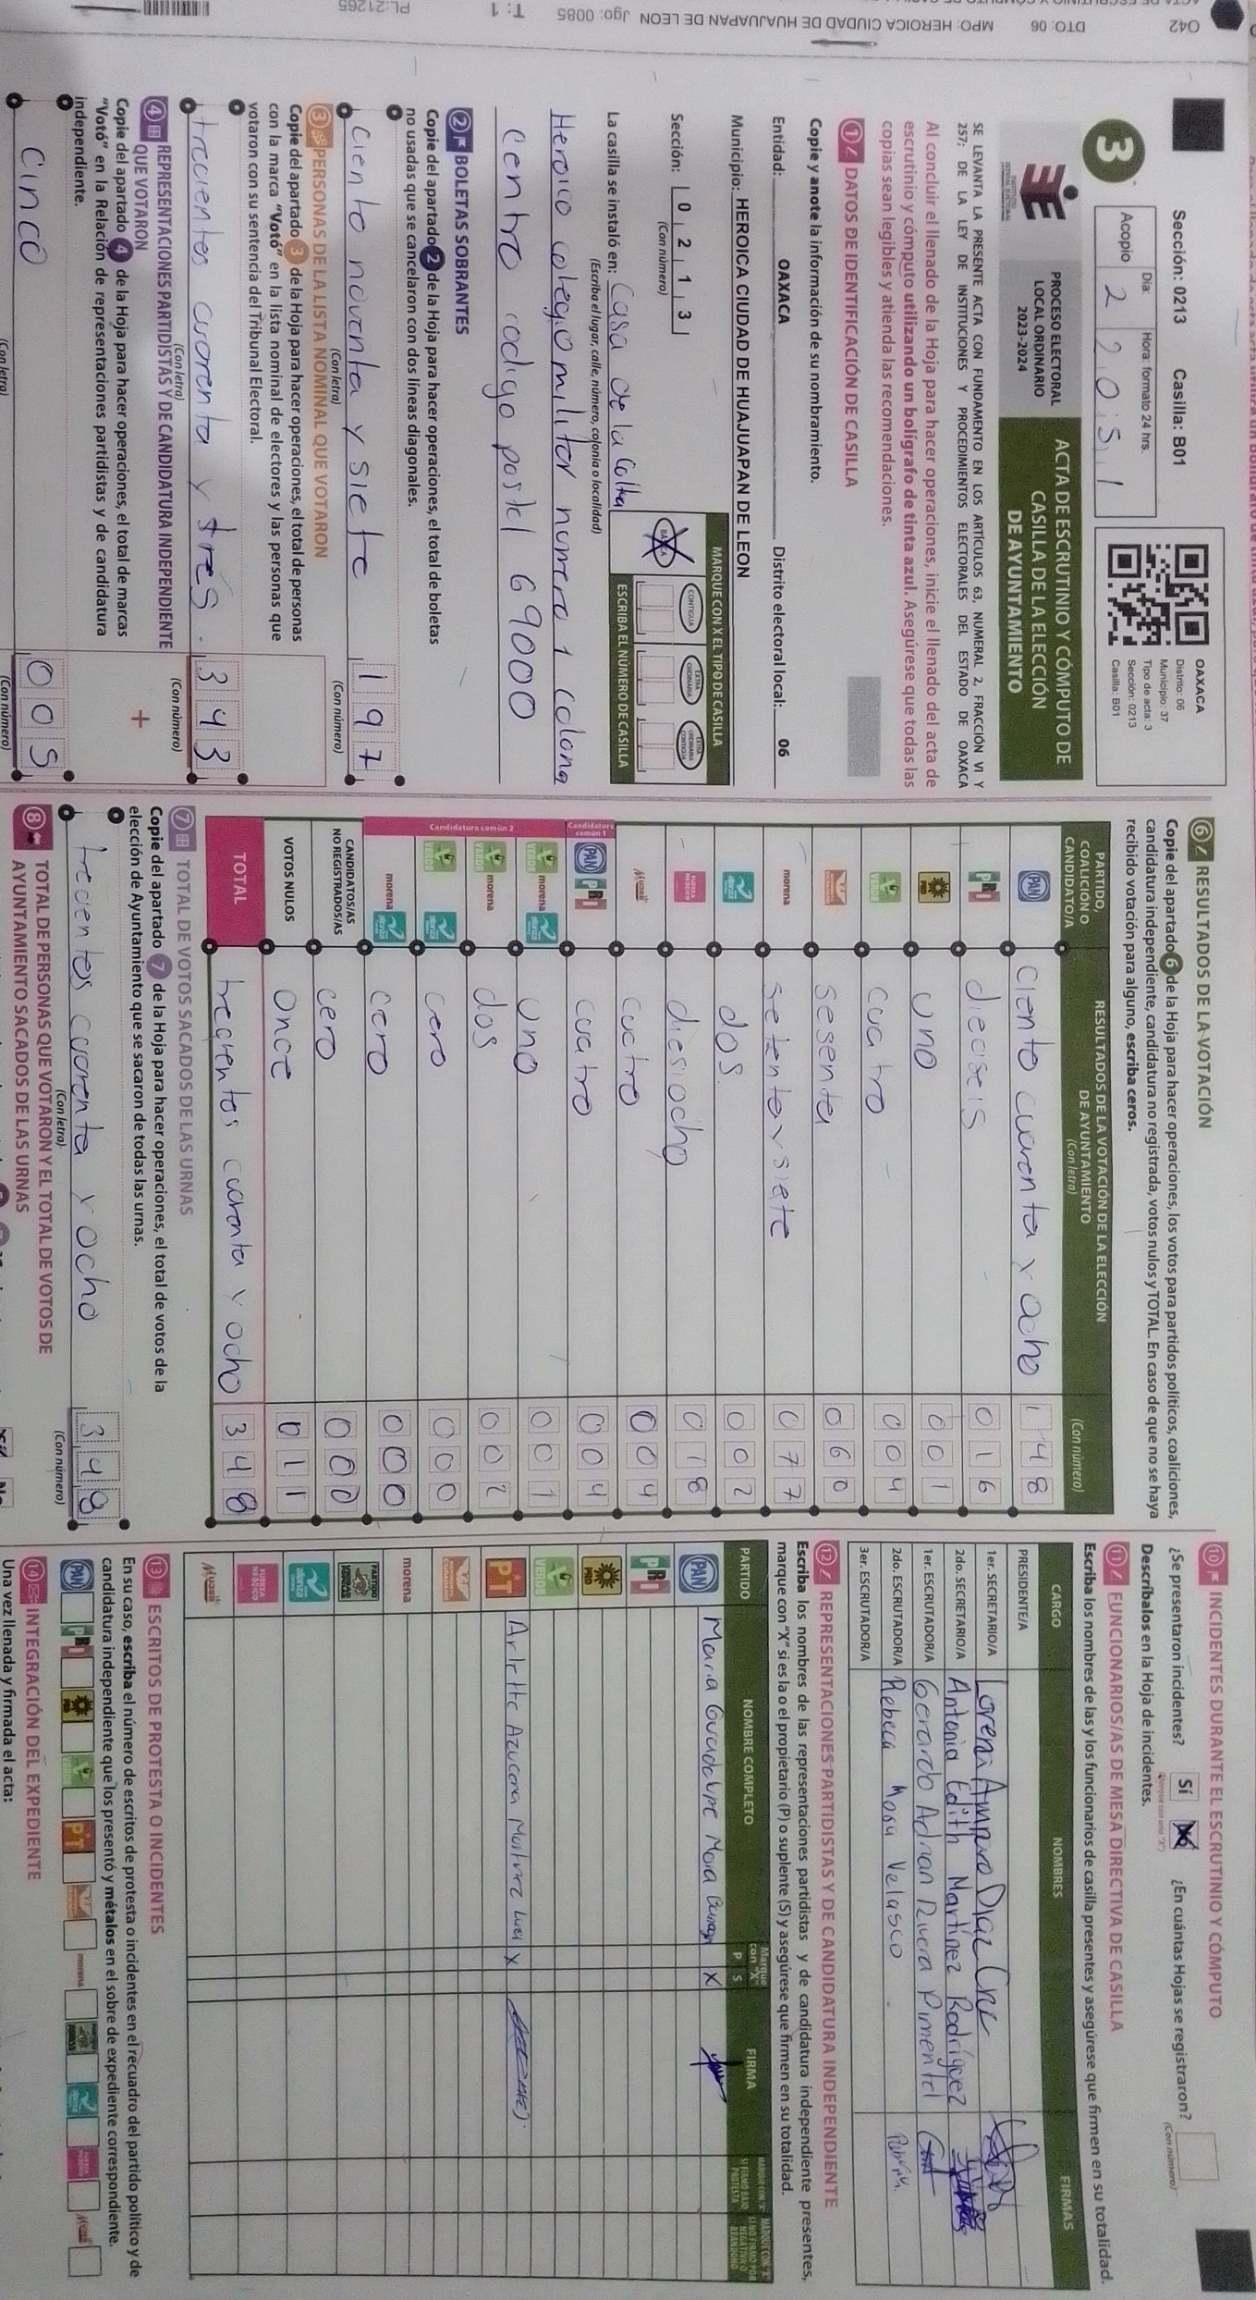 042 DTO: 06 MPO: HEROICA CIUDAD DE HUAJUAPAN DE LEON Jgo: 0085 T: 1 PL:21265
Sección: 0213 Casilla: B01
3
Día: Hora: formato 24 hrs.
Acopio 2 20:51
OAXACA
Distrito: 06
Municipio: 37
Tipo de acta: 3
Sección: 0213
Casilla: B01
PROCESO ELECTORAL
LOCAL ORDINARIO
2023-2024
ACTA DE ESCRUTINIO Y CÓMPUTO DE
CASILLA DE LA ELECCIÓN
DE AYUNTAMIENTO
SE LEVANTA LA PRESENTE ACTA CON FUNDAMENTO EN LOS ARTÍCULOS 63, NUMERAL 2, FRACCIÓN VI Y
257; DE LA LEY DE INSTITUCIONES Y PROCEDIMIENTOS ELECTORALES DEL ESTADO DE OAXACA
Al concluir el llenado de la Hoja para hacer operaciones, inicie el llenado del acta de
escrutinio y cómputo utilizando un bolígrafo de tinta azul. Asegúrese que todas las
copias sean legibles y atienda las recomendaciones.
1 DATOS DE IDENTIFICACIÓN DE CASILLA
Copie y anote la información de su nombramiento.
Entidad: OAXACA Distrito electoral local: 06
Municipio: HEROICA CIUDAD DE HUAJUAPAN DE LEON
Sección: 0213
(Con número)
MARQUE CON X EL TIPO DE CASILLA
BÁSICA CONTIGUA EXTRAORDINARIA EXTRAORDINARIA CONTIGUA
ESCRIBA EL NÚMERO DE CASILLA
La casilla se instaló en: Casa de la Cultu
(Escriba el lugar, calle, número, colonia o localidad)
Heroico colegio militar numero 1 colona
centro codigo postal 69000
2 BOLETAS SOBRANTES
Copie del apartado 2 de la Hoja para hacer operaciones, el total de boletas
no usadas que se cancelaron con dos líneas diagonales.
Ciento noventa y siete 197
(Con letra) (Con número)
3 PERSONAS DE LA LISTA NOMINAL QUE VOTARON
Copie del apartado 3 de la Hoja para hacer operaciones, el total de personas
con la marca "Votó" en la lista nominal de electores y las personas que
votaron con su sentencia del Tribunal Electoral.
trecientos cuorenta y tres. 343
(Con letra) (Con número)
4 REPRESENTACIONES PARTIDISTAS Y DE CANDIDATURA INDEPENDIENTE
QUE VOTARON
+
Copie del apartado 4 de la Hoja para hacer operaciones, el total de marcas
"Votó" en la Relación de representaciones partidistas y de candidatura
independiente.
Cinco 005
(Con letra) (Con número)
6 RESULTADOS DE LA VOTACIÓN
Copie del apartado 6 de la Hoja para hacer operaciones, los votos para partidos políticos, coaliciones,
candidatura independiente, candidatura no registrada, votos nulos y TOTAL. En caso de que no se haya
recibido votación para alguno, escriba ceros.
PARTIDO, COALICIÓN O CANDIDATO/A
RESULTADOS DE LA VOTACIÓN DE LA ELECCIÓN
DE AYUNTAMIENTO
(Con letra) (Con número)
PAN ciento cuarenta y ocho 148
PRI dieciseis 016
PRD uno 001
VERDE cuatro 004
sesenta 060
morena setenta y siete 077
dos. 002
diesiocho 018
cuatro 004
Candidatura común 1 PAN PRI cuatro 004
Candidatura común 2
VERDE morena uno 001
VERDE morena dos 002
VERDE cero 000
morena cero 000
CANDIDATOS/AS
NO REGISTRADOS/AS cero 000
VOTOS NULOS once 011
TOTAL trecientos cuarenta y ocho 348
7 TOTAL DE VOTOS SACADOS DE LAS URNAS
Copie del apartado 7 de la Hoja para hacer operaciones, el total de votos de la
elección de Ayuntamiento que se sacaron de todas las urnas.
trecientos cuarenta y ocho 348
(Con letra) (Con número)
8 TOTAL DE PERSONAS QUE VOTARON Y EL TOTAL DE VOTOS DE
AYUNTAMIENTO SACADOS DE LAS URNAS
10 INCIDENTES DURANTE EL ESCRUTINIO Y CÓMPUTO
¿Se presentaron incidentes? Sí No ¿En cuántas Hojas se registraron?
(Con número)
Descríbalos en la Hoja de incidentes.
11 FUNCIONARIOS/AS DE MESA DIRECTIVA DE CASILLA
Escriba los nombres de las y los funcionarios de casilla presentes y asegúrese que firmen en su totalidad.
CARGO NOMBRES FIRMAS
PRESIDENTE/A
1er. SECRETARIO/A Loreni Amparo Diaz Cruz
2do. SECRETARIO/A Antonia Edith Martínez Rodríguez
1er. ESCRUTADOR/A Gerardo Adrian Rivera Pimentel
2do. ESCRUTADOR/A Rebeca Rosa Velasco
3er. ESCRUTADOR/A
12 REPRESENTACIONES PARTIDISTAS Y DE CANDIDATURA INDEPENDIENTE
Escriba los nombres de las representaciones partidistas y de candidatura independiente presentes,
marque con "X" si es la o el propietario (P) o suplente (S) y asegúrese que firmen en su totalidad.
PARTIDO NOMBRE COMPLETO Marque con "X" P S FIRMA
PAN Maria Guadalupe Mora X
PRI
PRD
VERDE
PT Arlette Azucena X
morena
13 ESCRITOS DE PROTESTA O INCIDENTES
En su caso, escriba el número de escritos de protesta o incidentes en el recuadro del partido político y de
candidatura independiente que los presentó y métalos en el sobre de expediente correspondiente.
PAN PRI PRD VERDE PT morena
14 INTEGRACIÓN DEL EXPEDIENTE
Una vez llenada y firmada el acta: